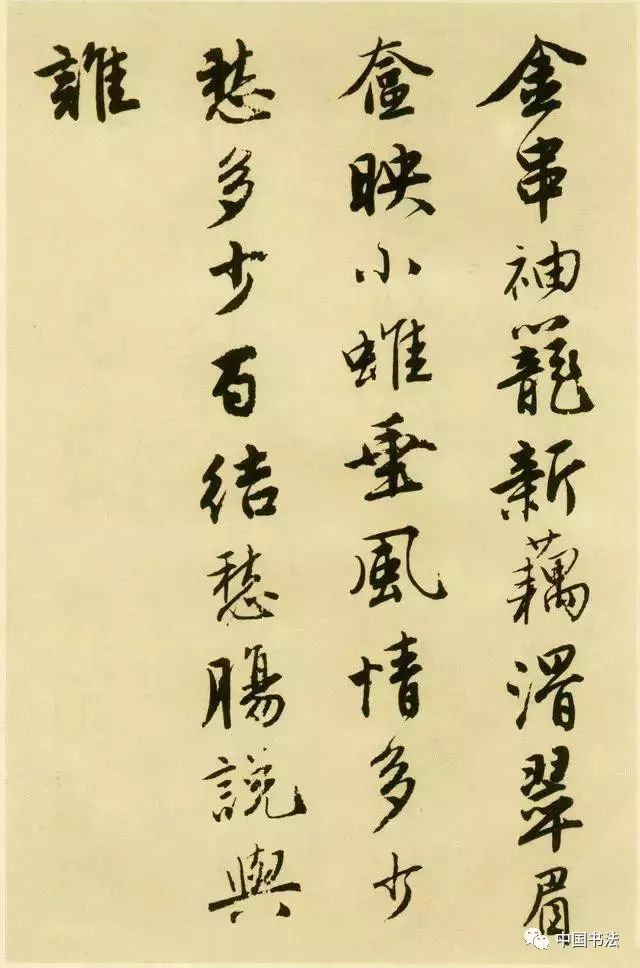 金串袖籠新藕滑翠眉
奩映小蜼垂風情多少
愁多少百結愁腸說與
誰
中国书法